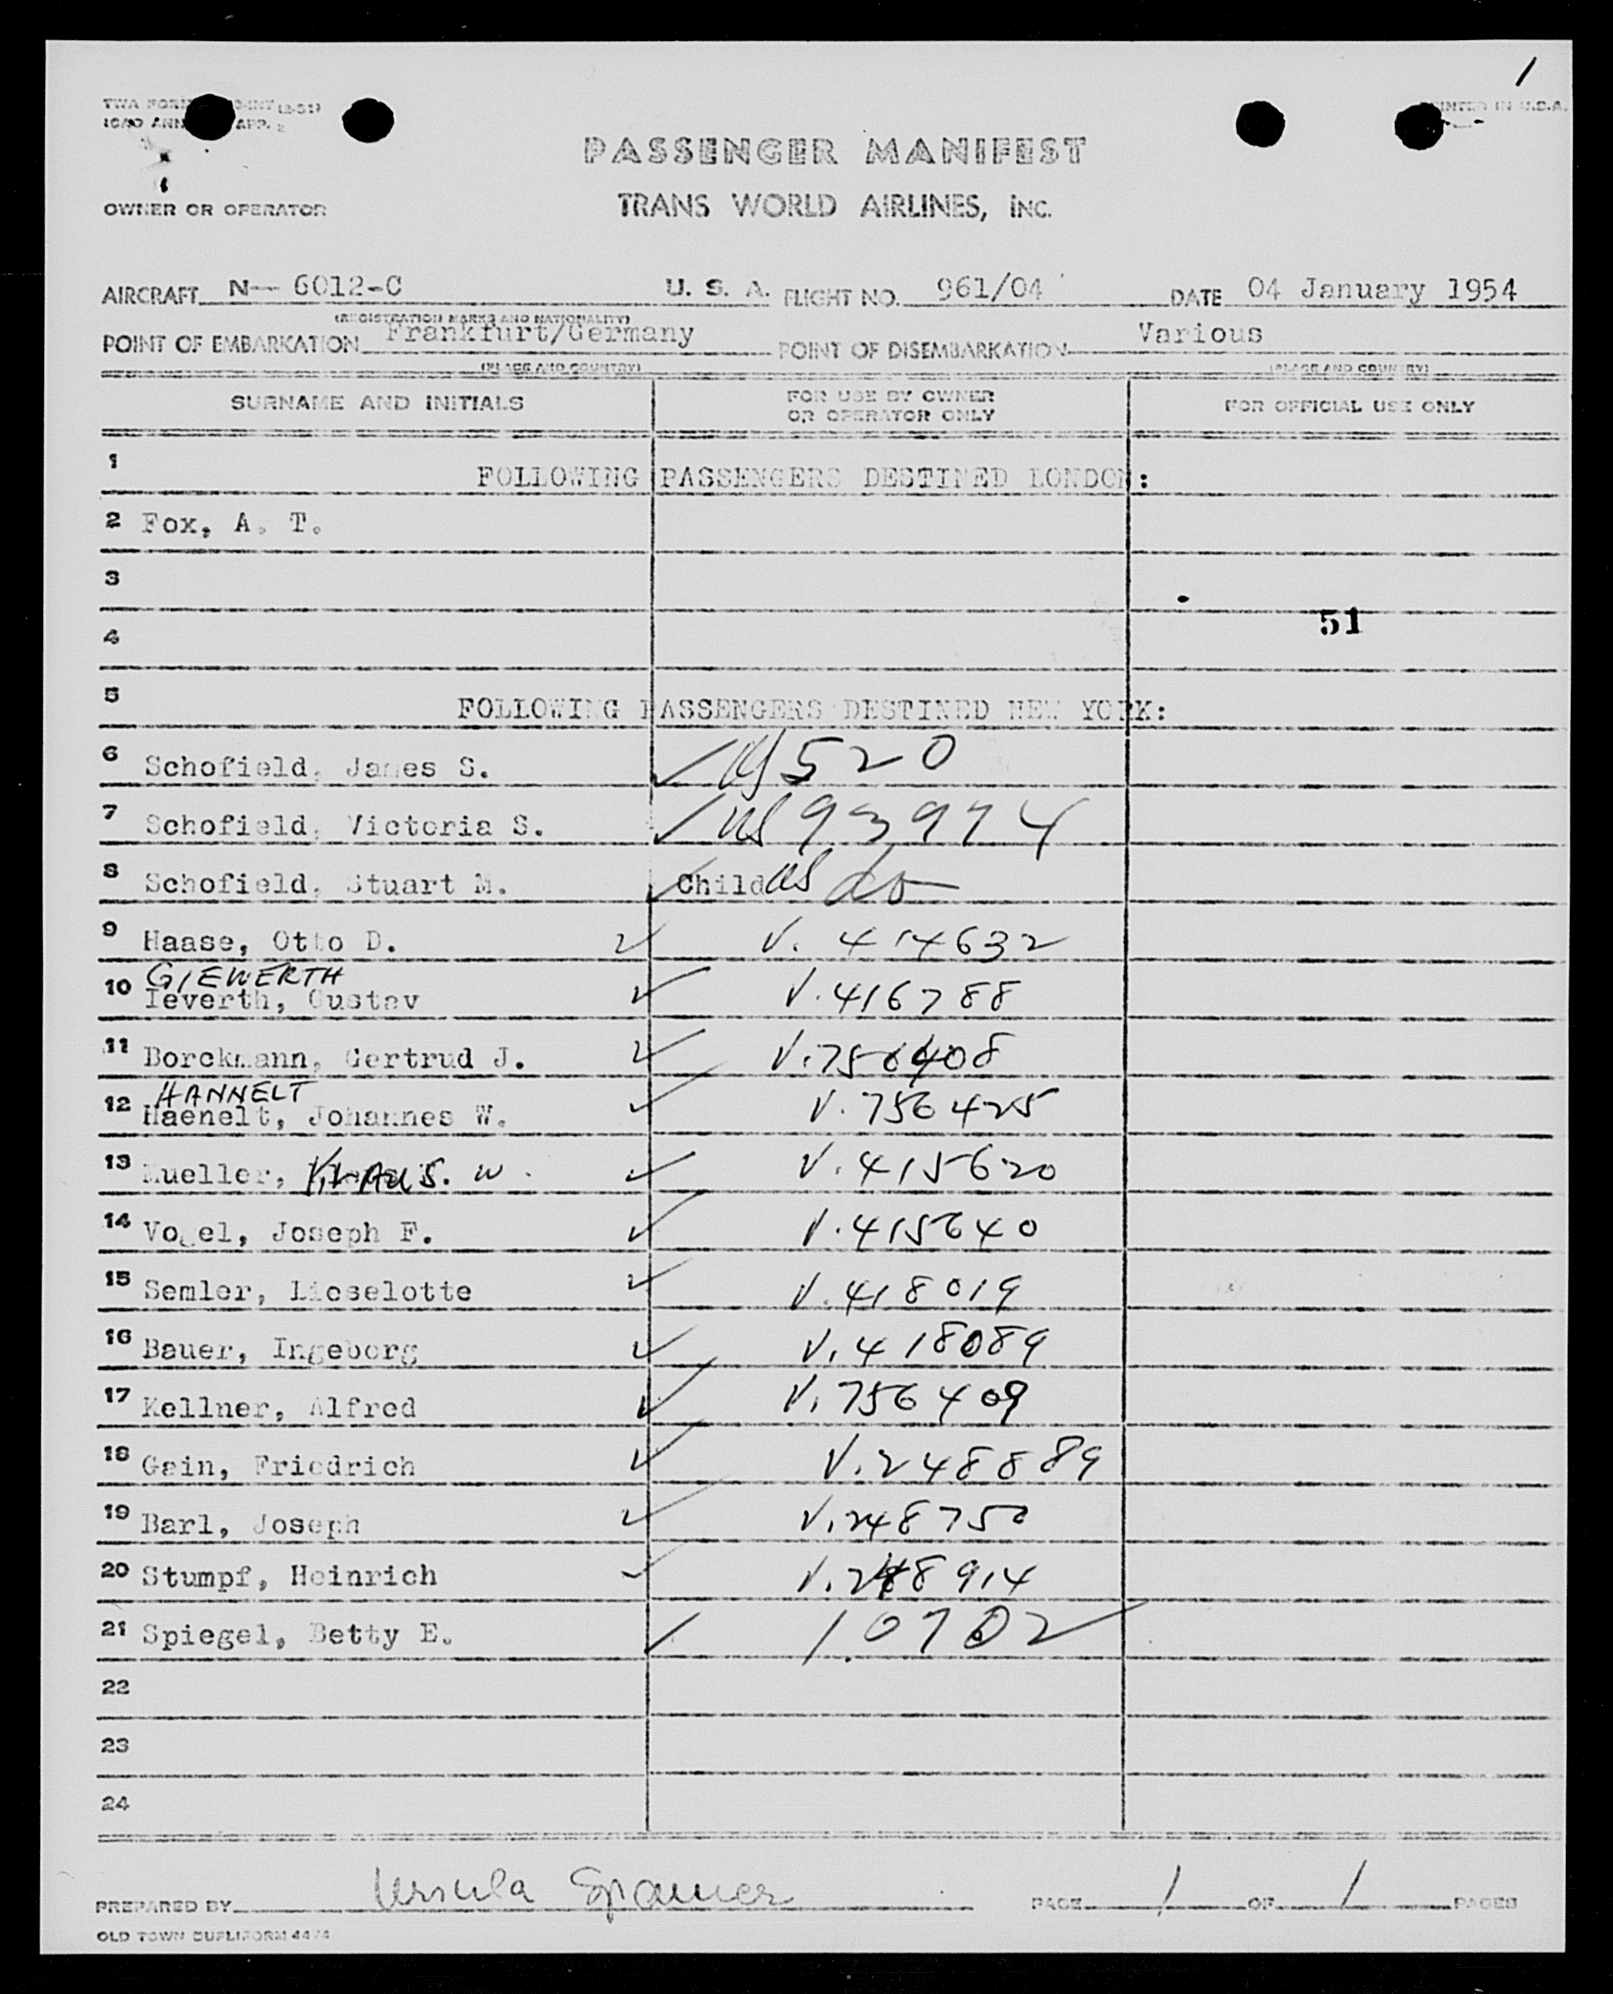 1
TWA FORM
PRINTED IN U.S.A.
PASSENGER MANIFEST
OWNER OR OPERATOR
TRANS WORLD AIRLINES, INC.
AIRCRAFT N-- 6012-C U. S. A. FLIGHT NO. 961/04 DATE 04 January 1954
(REGISTRATION MARKS AND NATIONALITY)
POINT OF EMBARKATION Frankfurt/Germany POINT OF DISEMBARKATION Various
(PLACE AND COUNTRY) (PLACE AND COUNTRY)
SURNAME AND INITIALS FOR USE BY OWNER OR OPERATOR ONLY FOR OFFICIAL USE ONLY
1 FOLLOWING PASSENGERS DESTINED LONDON:
2 Fox, A. T.
3
4 51
5 FOLLOWING PASSENGERS DESTINED NEW YORK:
6 Schofield, James S. ✓ 520
7 Schofield, Victoria S. ✓ US 93974
8 Schofield, Stuart M. ✓ Child US do
9 Haase, Otto D. ✓ V. 414632
GIEWERTH
10 Ieverth, Gustav ✓ V.416788
11 Borckmann, Gertrud J. ✓ V.756408
HANNELT
12 Haenelt, Johannes W. ✓ V. 756425
13 Mueller, KLAUS. W. ✓ V.415620
14 Vogel, Joseph F. ✓ V.415640
15 Semler, Lieselotte ✓ V.418019
16 Bauer, Ingeborg ✓ V.418089
17 Kellner, Alfred ✓ V.756409
18 Gein, Friedrich ✓ V.248889
19 Barl, Joseph ✓ V.248750
20 Stumpf, Heinrich ✓ V.248914
21 Spiegel, Betty E. ✓ 1.0702
22
23
24
PREPARED BY Ursula Spamer PAGE 1 OF 1 PAGES
OLD TOWN DUPLIFORM 4474